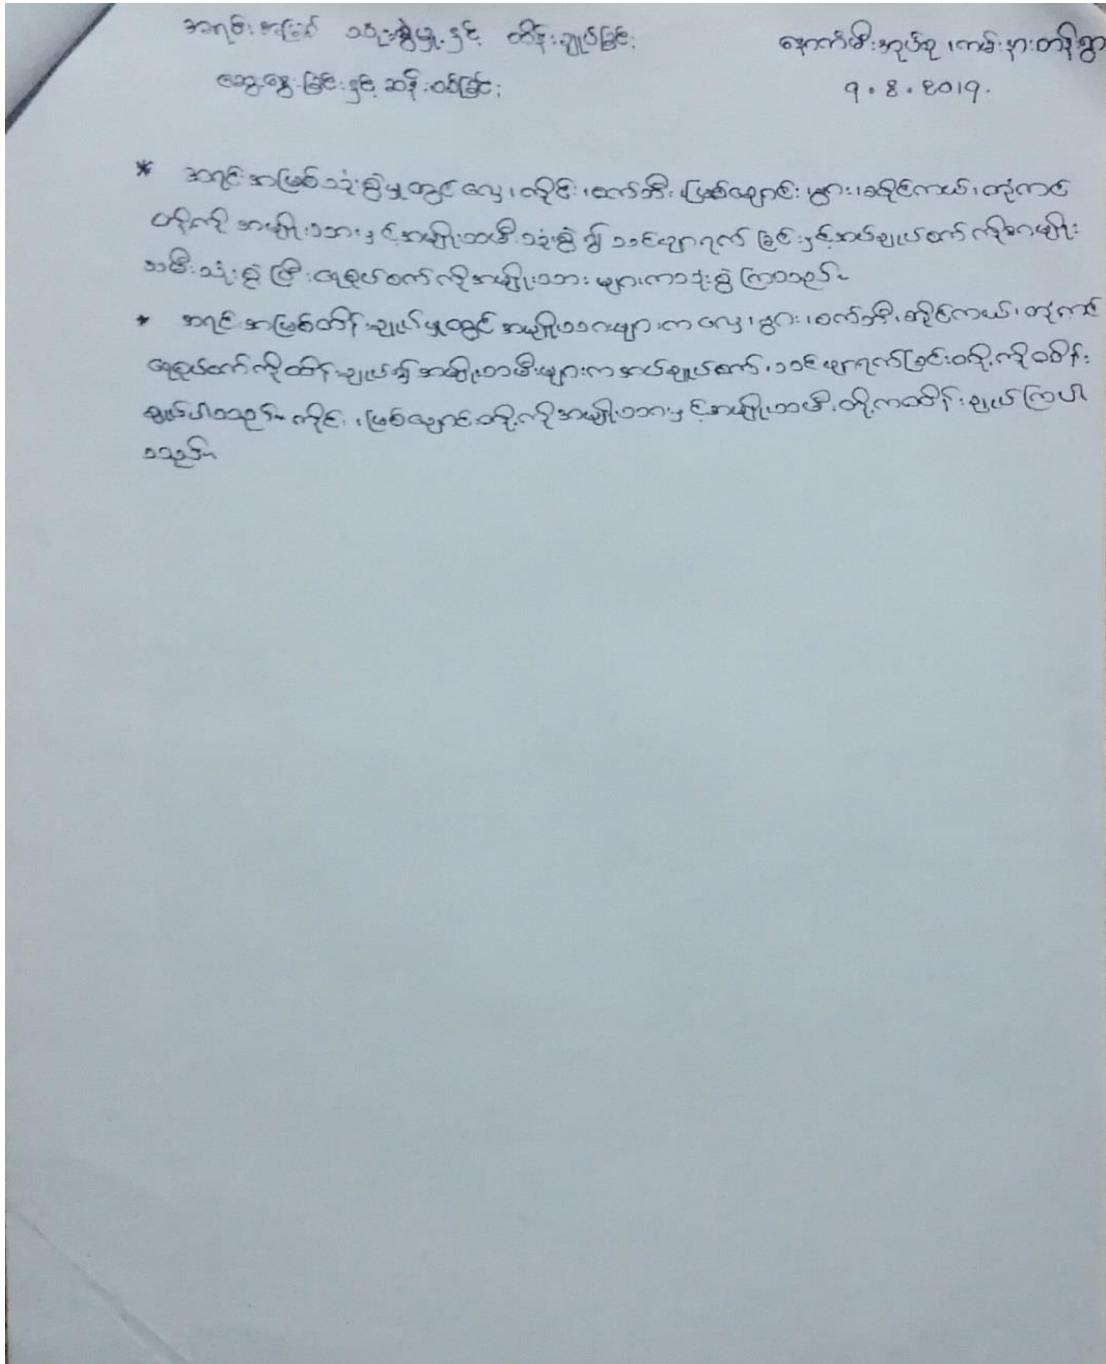 အရင်းအမြစ် သုံးစွဲမှု နှင့် ထိန်းချုပ်ခြင်း နောက်မီးအုပ်စု ၊ ကမ်းနားတန်းရွာ
ဆွေးနွေးခြင်းနှင့် ဆန်းစစ်ခြင်း ၇.၄.၂၀၁၇.
* အရင်းအမြစ်သုံးစွဲမှုတွင် လှေ၊ လှိုင်း၊ စက်ဘီး ၊ နွား၊ ဆိုင်ကယ်၊
တို့ကို အမျိုးသားနှင့်အမျိုးသမီး သုံးစွဲ၍ သင်ဖျာရက်ခြင်းနှင့်အပ်ချုပ်စက်ကိုအမျိုး
သမီးသုံးစွဲပြီး ရေစုပ်စက်ကိုအမျိုးသားများကသုံးစွဲကြသည်။
* အရင်းအမြစ်ထိန်းချုပ်မှုတွင် အမျိုးသားများက လှေ၊ နွား၊ စက်ဘီး၊ ဆိုင်ကယ်၊
ရေစုပ်စက်ကိုထိန်းချုပ်၍ အမျိုးသမီးများကအပ်ချုပ်စက်၊ သင်ဖျာရက်ခြင်းတို့ကိုထိန်း
ချုပ်ပါသည်။ တို့ကိုအမျိုးသားနှင့်အမျိုးသမီးတို့ကထိန်းချုပ်ကြပါ
သည်။